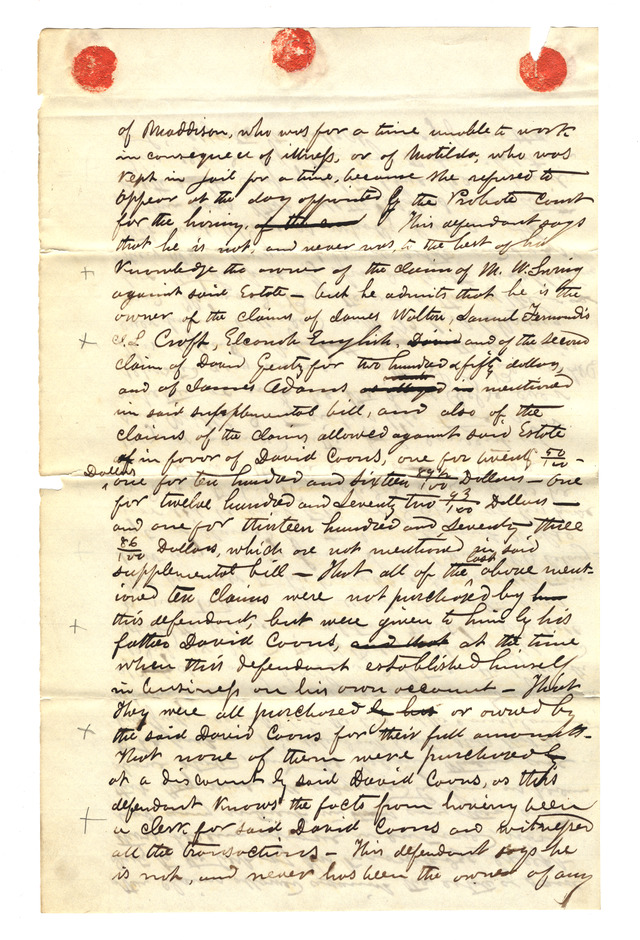 of Maddison, who was for a time unable to work
in consequece of illness, or of Matilda, who was
kept in jail for a time, because she refused to
appear at the day appointed by the Probate Court
for the hiring. This defendant says
that he is not, and never was, to the best of his
Knowledge the owner of the claim of M. W. Irving
against said Estate — but he admits that he is the
owner of the claims of James Walton, Samuel
Croft, Eleonah English, David and of the second
claim of David Gentz for two hundred & fifty dollars,
and of James Adams mentioned
in said supplemental bill, and also of the
claims of the claims allowed against said Estate
in favor of David Coons, one for twenty 50/100 -
Dollars
one for ten hundred and sixteen /100 Dollars — one
for twelve hundred and seventy two 93/100 Dollars —
and one for thirteen hundred and seventy three
86/100 Dollars, which are not mentioned in said
supplemental bill — That all of the last above ment-
ioned ten claims were not purchased by him
this defendant, but were given to him by his
father David Coons, and that at the time
when this defendant established himself
in business on his own account — That
They were all purchased by or owned by
the said David Coons for their full amounts -
That none of them were purchased by
at a discount by said David Coons, as this
defendant knows the facts from having been
a clerk for said David Coons and witnessed
all the transactions — This defendant says he
is not, and never has been the owner of any